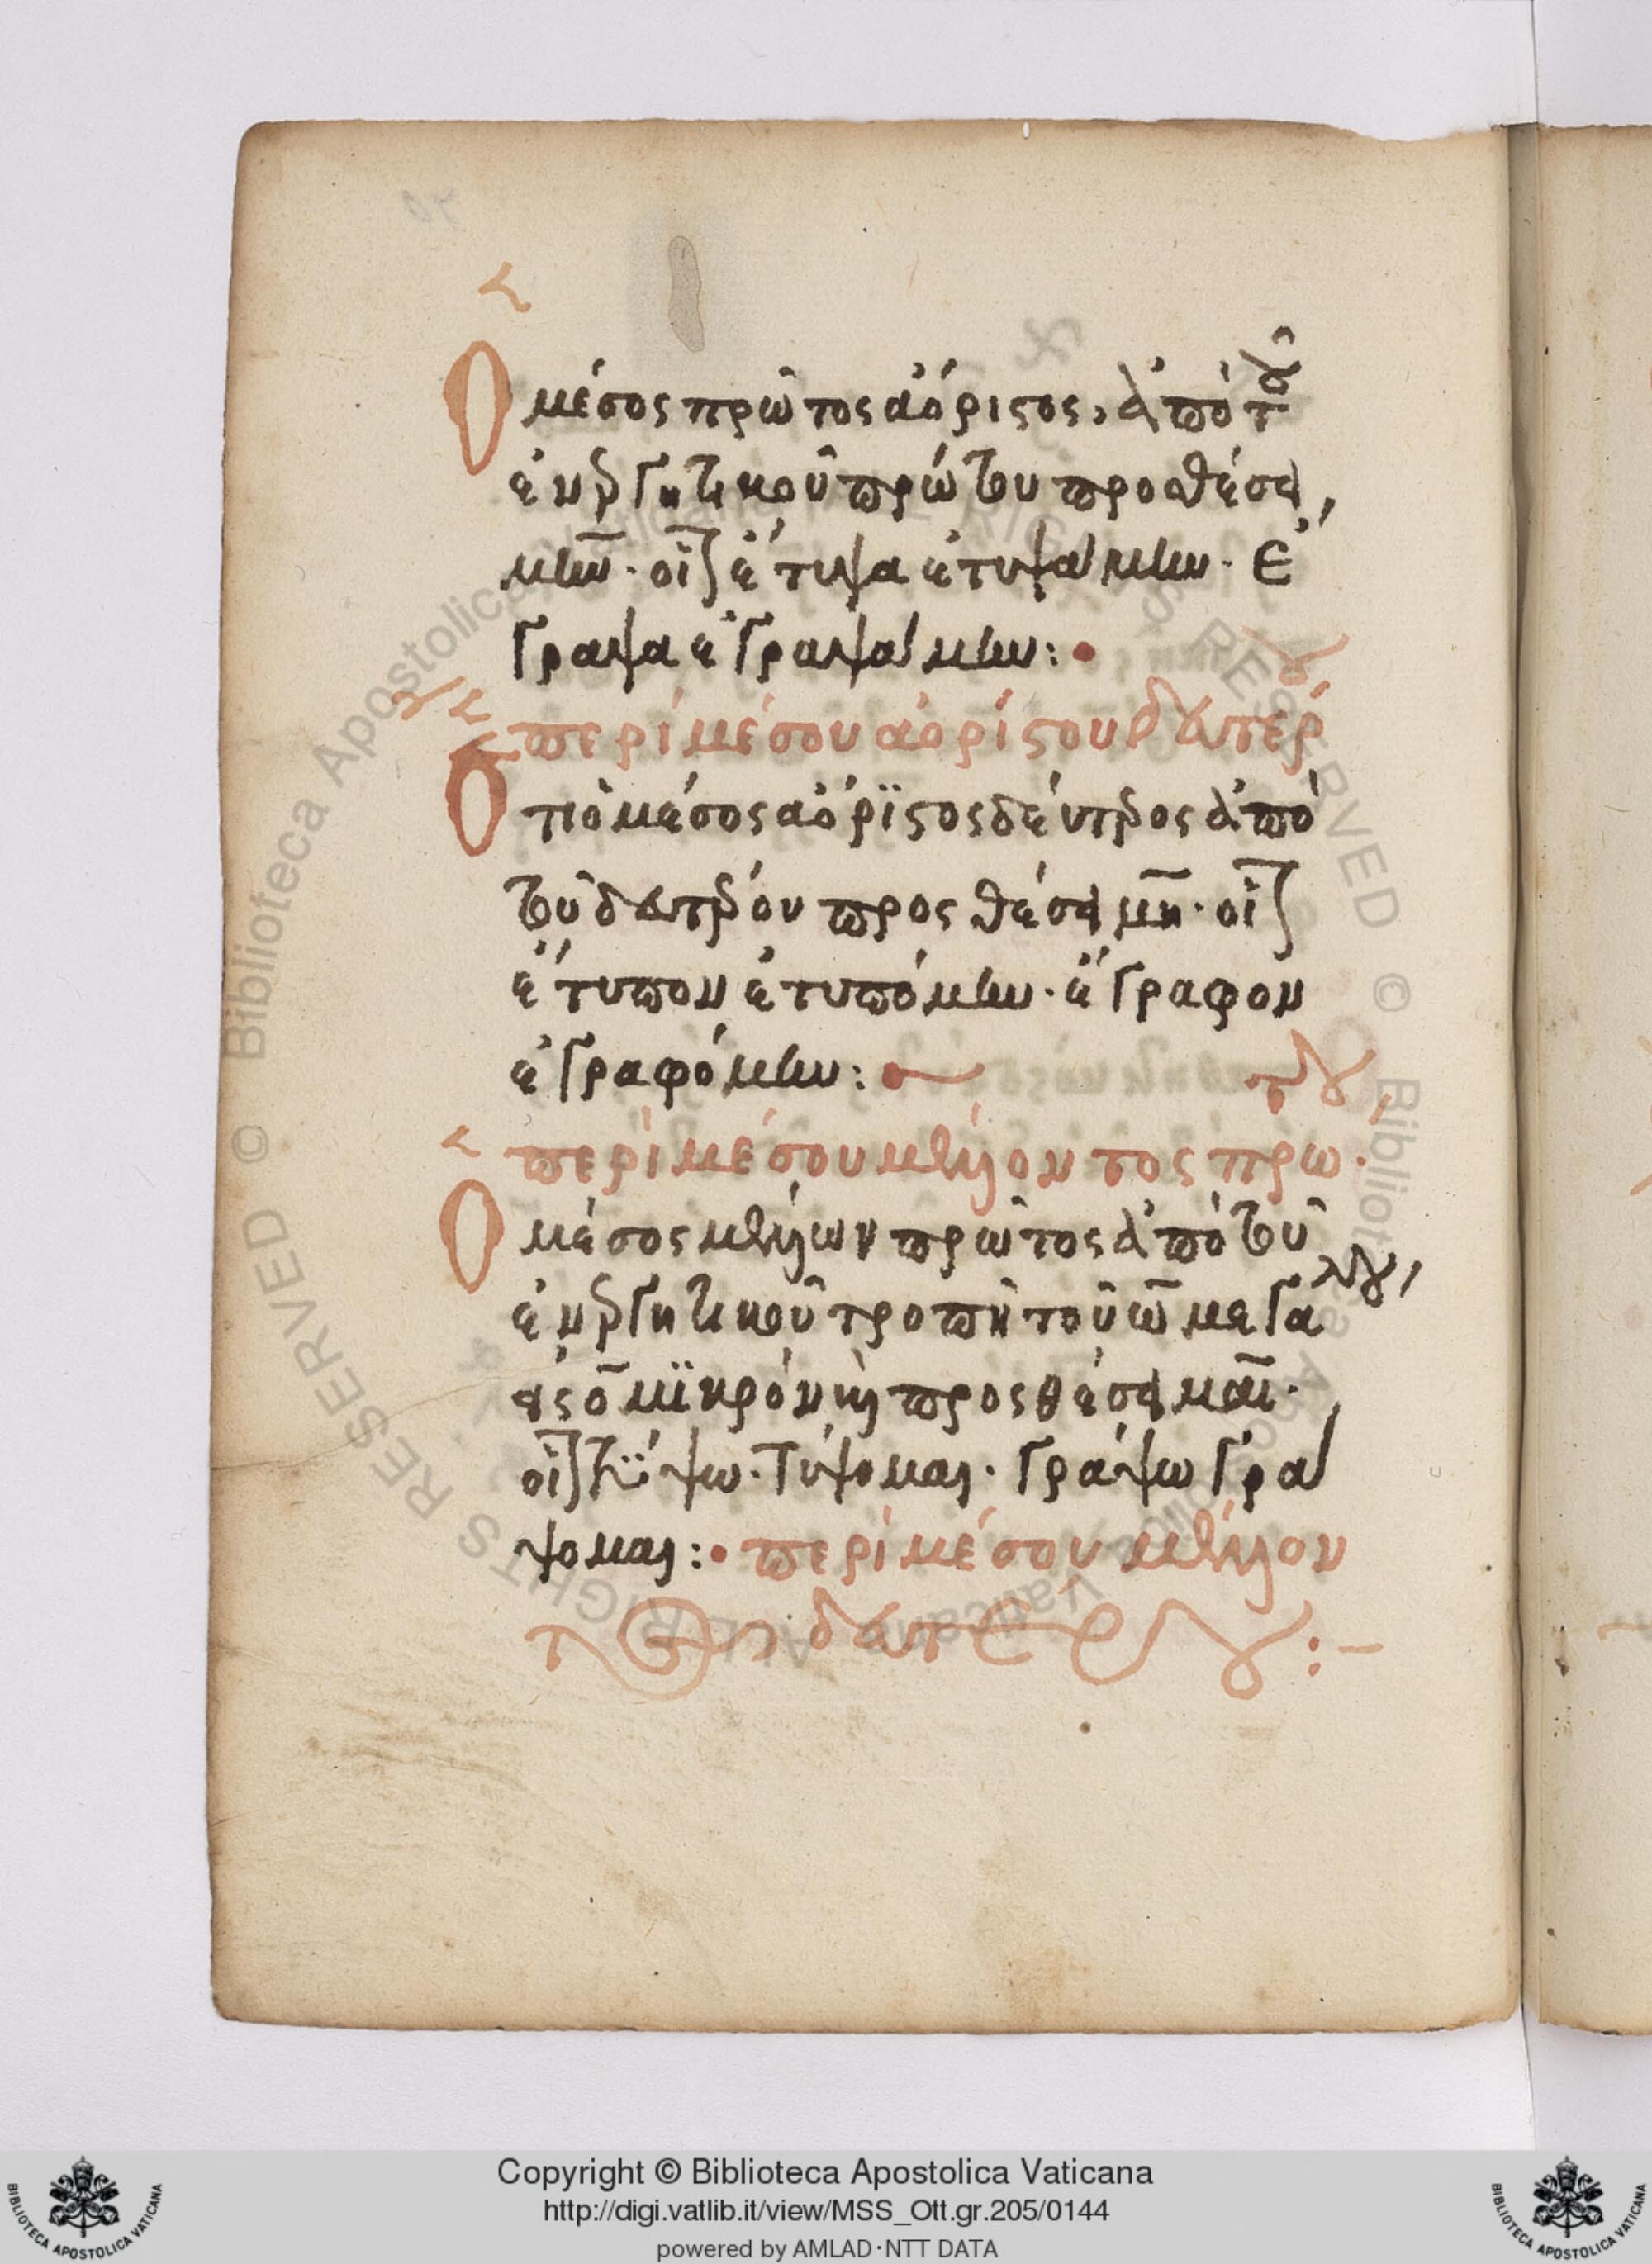 Ὁ μέσος πρῶτος ἀόριστος, ἀπὸ τοῦ
ἐνεργητικοῦ πρώτου προσθέσει
μην̄. οἷον ἔτυψα ἐτυψάμην. ἔ
γραψα ἐγραψάμην:
περὶ μέσου ἀορίστου δευτέρου
Ὅτι ὁ μέσος ἀόρϊστος δεύτερος ἀπὸ
τοῦ δευτέρου προσθέσει μη̄. οἷον
ἔτυπον ἐτυπόμην. ἔγραφον
ἐγραφόμην:
περὶ μέσου μέλλοντος πρώτου
Ὁ μέσος μέλλων πρῶτος ἀπὸ τοῦ
ἐνεργητικοῦ τροπῇ τοῦ ω̄ μεγάλου,
εἰς ο̄ μϊκρὸν καὶ προσθέσει μαῑ.
οἷον τΰψω. τύψομαι. γράψω γρά
ψομαι: περὶ μέσου μέλλον
τος δευτέρου:-
Copyright © Biblioteca Apostolica Vaticana
http://digi.vatlib.it/view/MSS_Ott.gr.205/0144
powered by AMLAD·NTT DATA
BIBLIOTECA APOSTOLICA VATICANA
BIBLIOTECA APOSTOLICA VATICANA